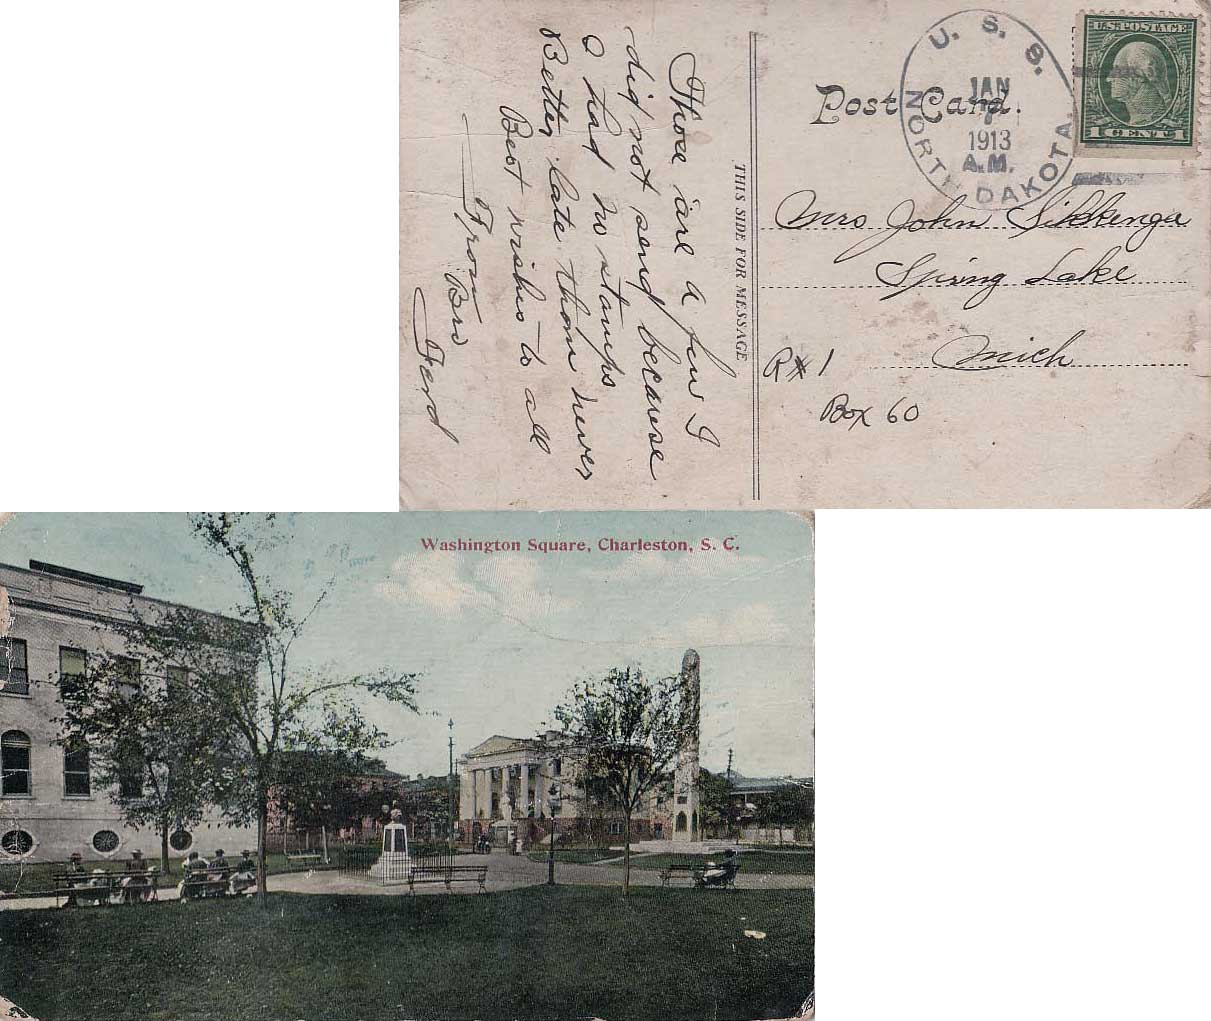 U. S. S.
JAN
7
1913
A.M.
NORTH DAKOTA.
U.S. POSTAGE
1 CENT 1
Post Card.
THIS SIDE FOR MESSAGE
These are a few I
did not send because
I had no stamps
Better late than never
Best wishes to all
From Bro
Ferd
Mrs John Sikkenga
Spring Lake
Mich
R#1
Box 60
Washington Square, Charleston, S. C.